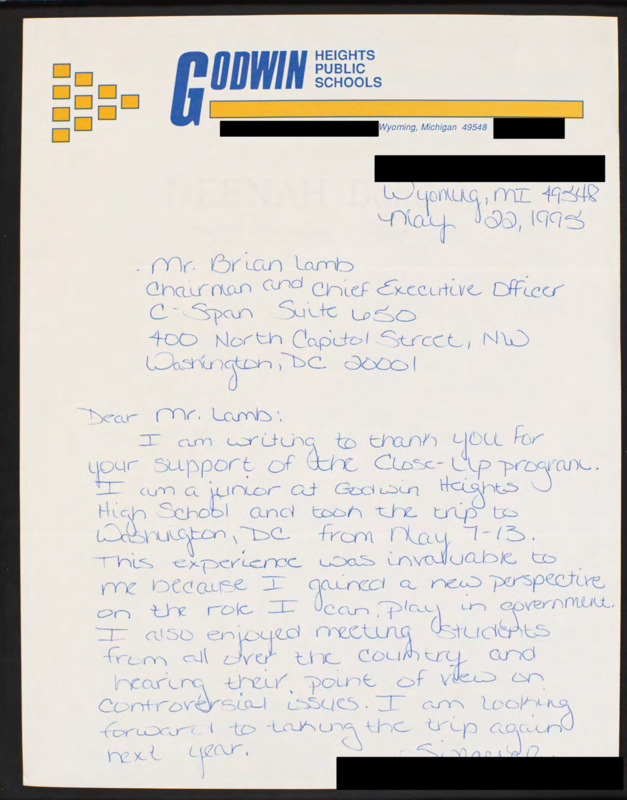 GODWIN HEIGHTS
PUBLIC
SCHOOLS
Wyoming, Michigan 49548
Wyoming, MI 49548
May 22, 1995
Mr. Brian Lamb
Chairman and Chief Executive Officer
C-Span Suite 650
400 North Capitol Street, NW
Washington, DC 20001
Dear Mr. Lamb:
I am writing to thank you for
your support of the Close-Up program.
I am a junior at Godwin Heights
High School and took the trip to
Washington, DC from May 7-13.
This experience was invaluable to
me because I gained a new perspective
on the role I can play in government.
I also enjoyed meeting students
from all over the country and
hearing their point of view on
controversial issues. I am looking
forward to taking the trip again
next year.
Sincerely,